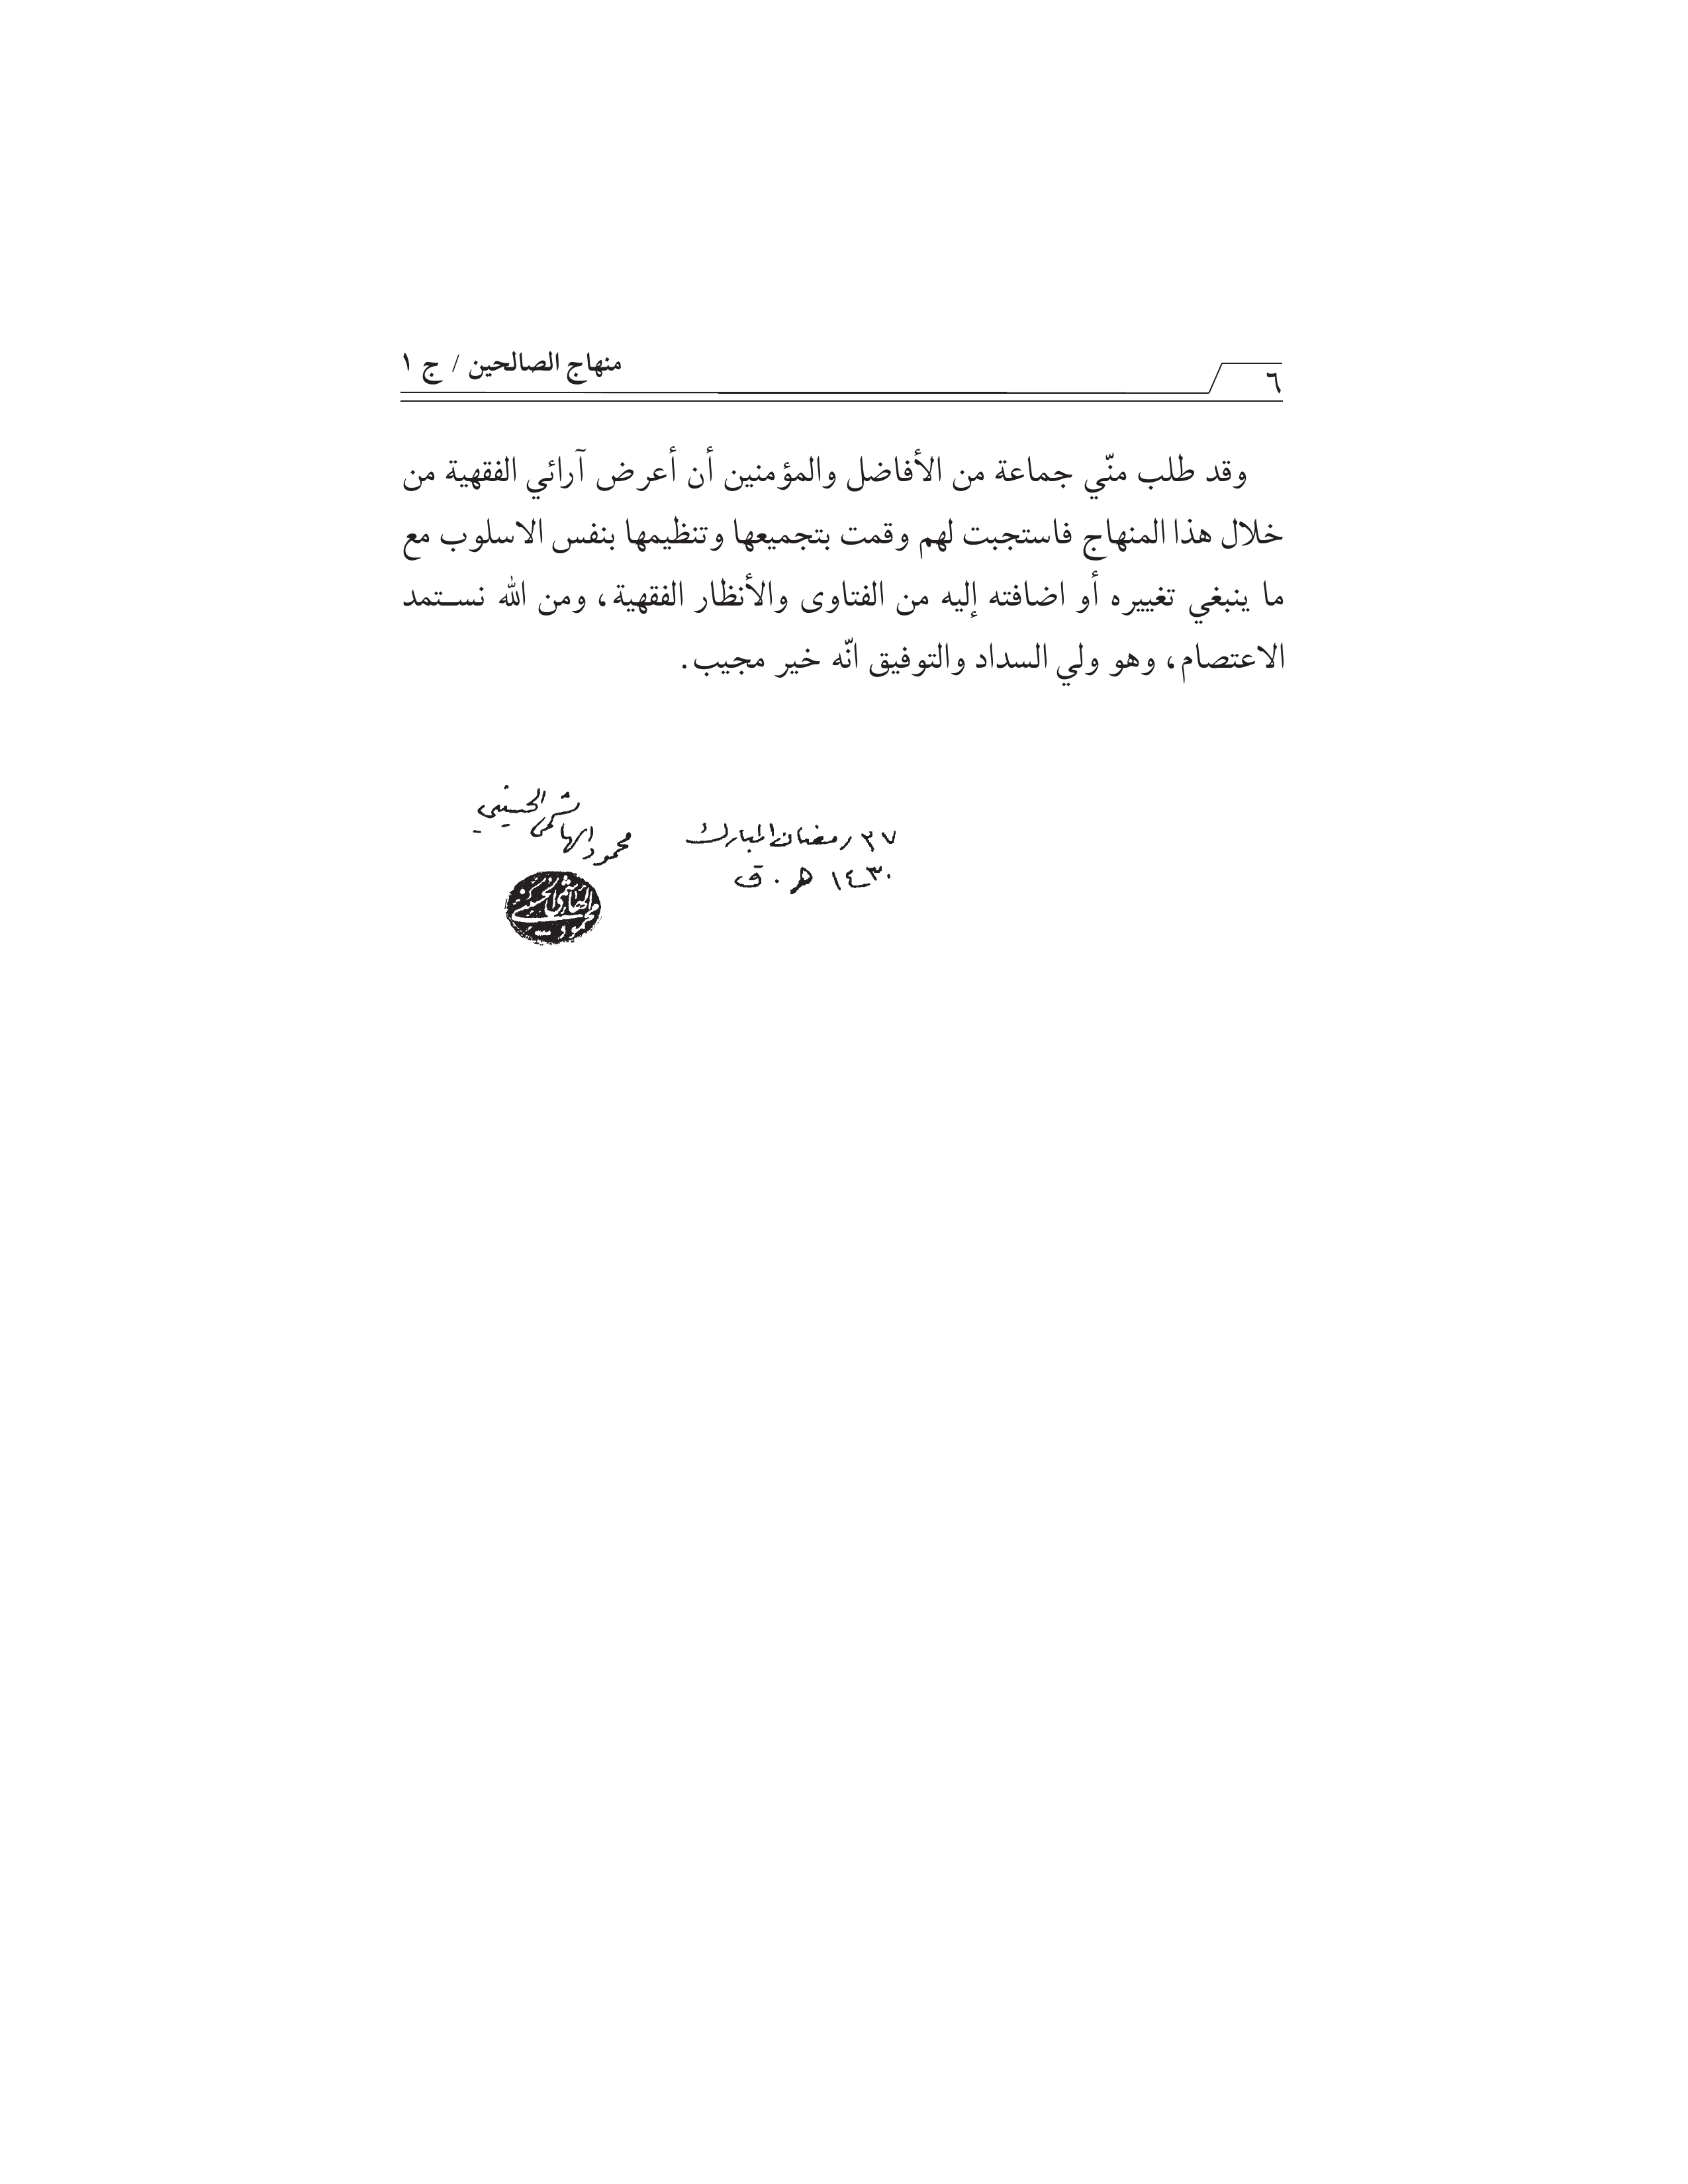 منهاج الصالحين / ج ١
٦
وقد طلب منّي جماعة من الأفاضل والمؤمنين أن أعرض آرائي الفقهية من
خلال هذا المنهاج فاستجبت لهم وقمت بتجميعها وتنظيمها بنفس الاسلوب مع
ما ينبغي تغييره أو اضافته إليه من الفتاوى والأنظار الفقهية، ومن الله نستمد
الاعتصام، وهو ولي السداد والتوفيق انّه خير مجيب.
محمود الهاشمي الحسيني
٢٧ رمضان المبارك
١٤٣٠ هـ . ق
محمود الهاشمي الحسيني